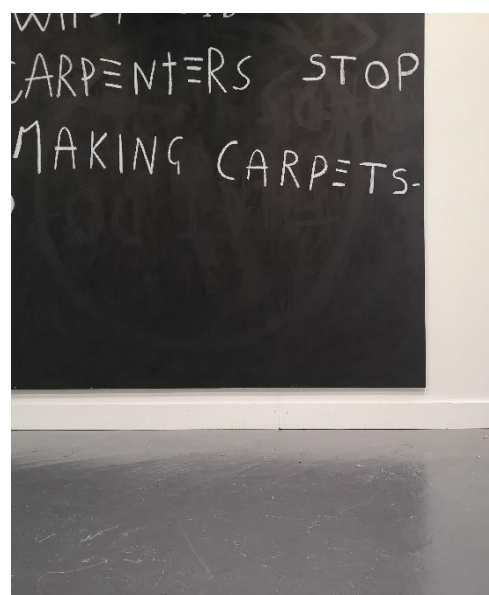 CARPENTERS STOP
MAKING CARPETS-